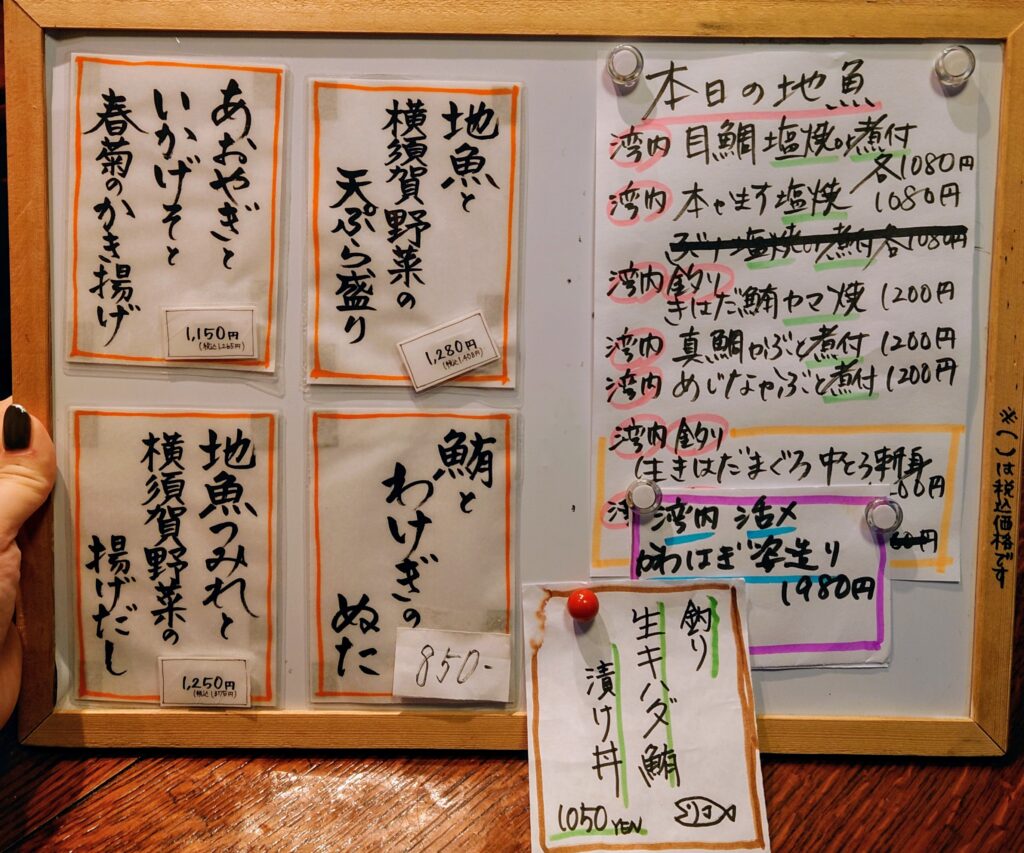 あおやぎと
いかげそと
春菊のかき揚げ
1,150円
(税込1,265円)
地魚と
横須賀野菜の
天ぷら盛り
1,280円
(税込1,408円)
地魚つみれと
横須賀野菜の
揚げだし
1,250円
(税込1,375円)
鮪と
わけぎの
ぬた
850-
本日の地魚
湾内 目鯛 塩焼or煮付
各1080円
湾内 本かます塩焼 1080円
ぶり 塩焼or煮付 各1080円
湾内 釣り
きはだ鮪カマ焼 1200円
湾内 真鯛かぶと煮付 1200円
湾内 めじなかぶと煮付 1200円
湾内 釣り
生きはだまぐろ 中とろ刺身
00円
湾内 活〆
かわはぎ姿造り
1980円
釣り
生キハダ鮪
漬け丼
1050 YEN
※( )は税込価格です